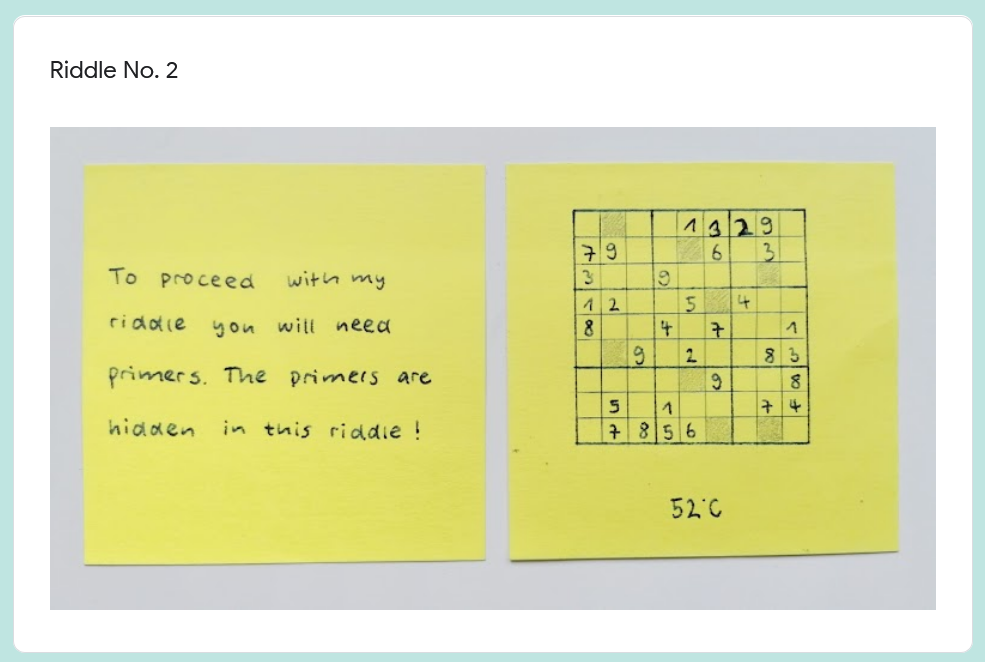 Riddle No. 2
To proceed with my
riddle you will need
primers. The primers are
hidden in this riddle!
1 3 2 9
7 9 6 3
3 9
1 2 5 4
8 4 7 1
9 2 8 3
9 8
5 1 7 4
7 8 5 6
52°C